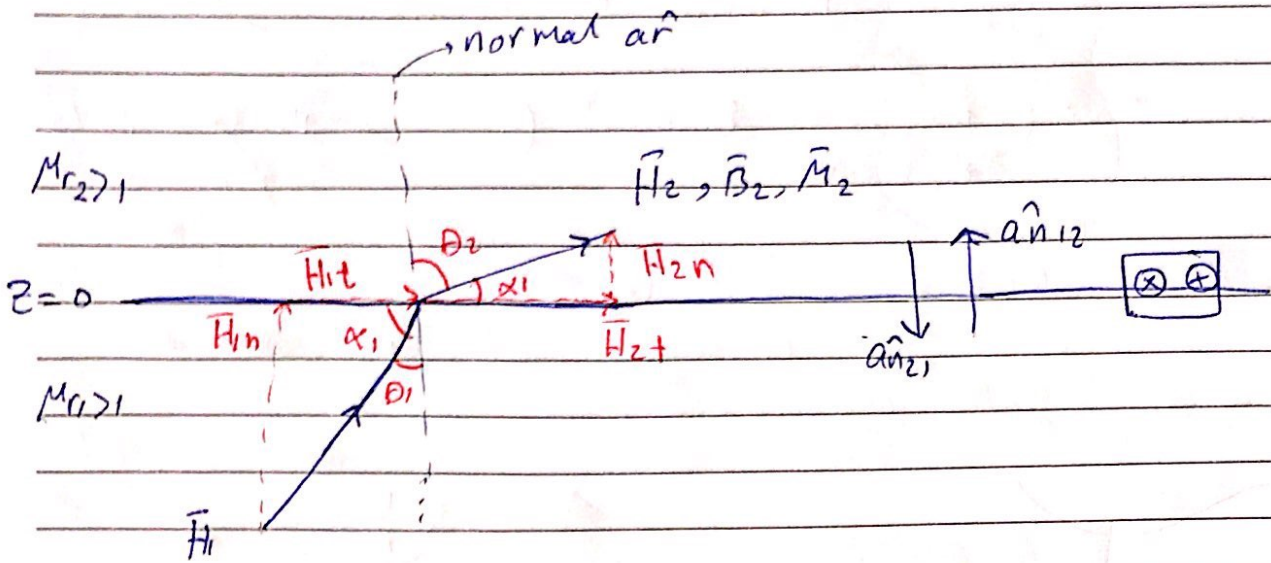 normal ar̂
μr₂>1
H̄₂, B̄₂, M̄₂
θ₂
H̄₁t
α₁
H̄₂n
ân₁₂
z=0
⊗ ⊕
H̄₁n
α₁
H̄₂t
ân₂₁
θ₁
μr₁>1
H̄₁